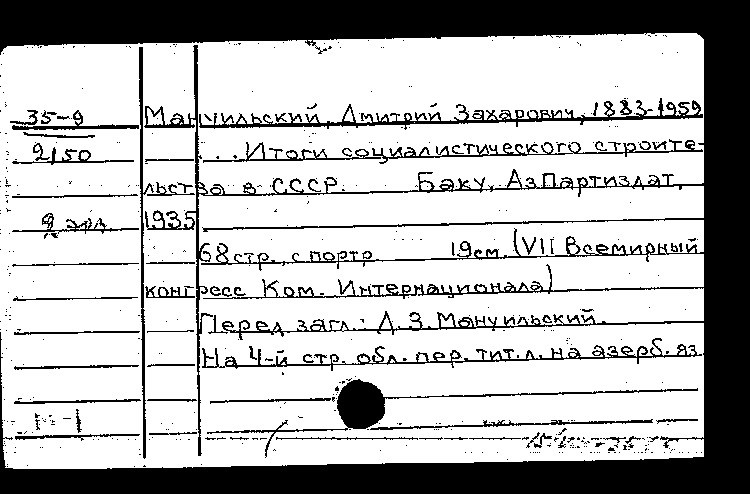 35-9
2150
2 экз
Мануильский, Дмитрий Захарович, 1883-1959
...Итоги социалистического строите-
льства в СССР. Баку, АзПартиздат,
1935.
68 стр., с портр. 19 см. (VII Всемирный
конгресс Ком. Интернационала)
Перед загл.: Д. З. Мануильский.
На 4-й стр. обл. пер. тит. л. на азерб. яз.